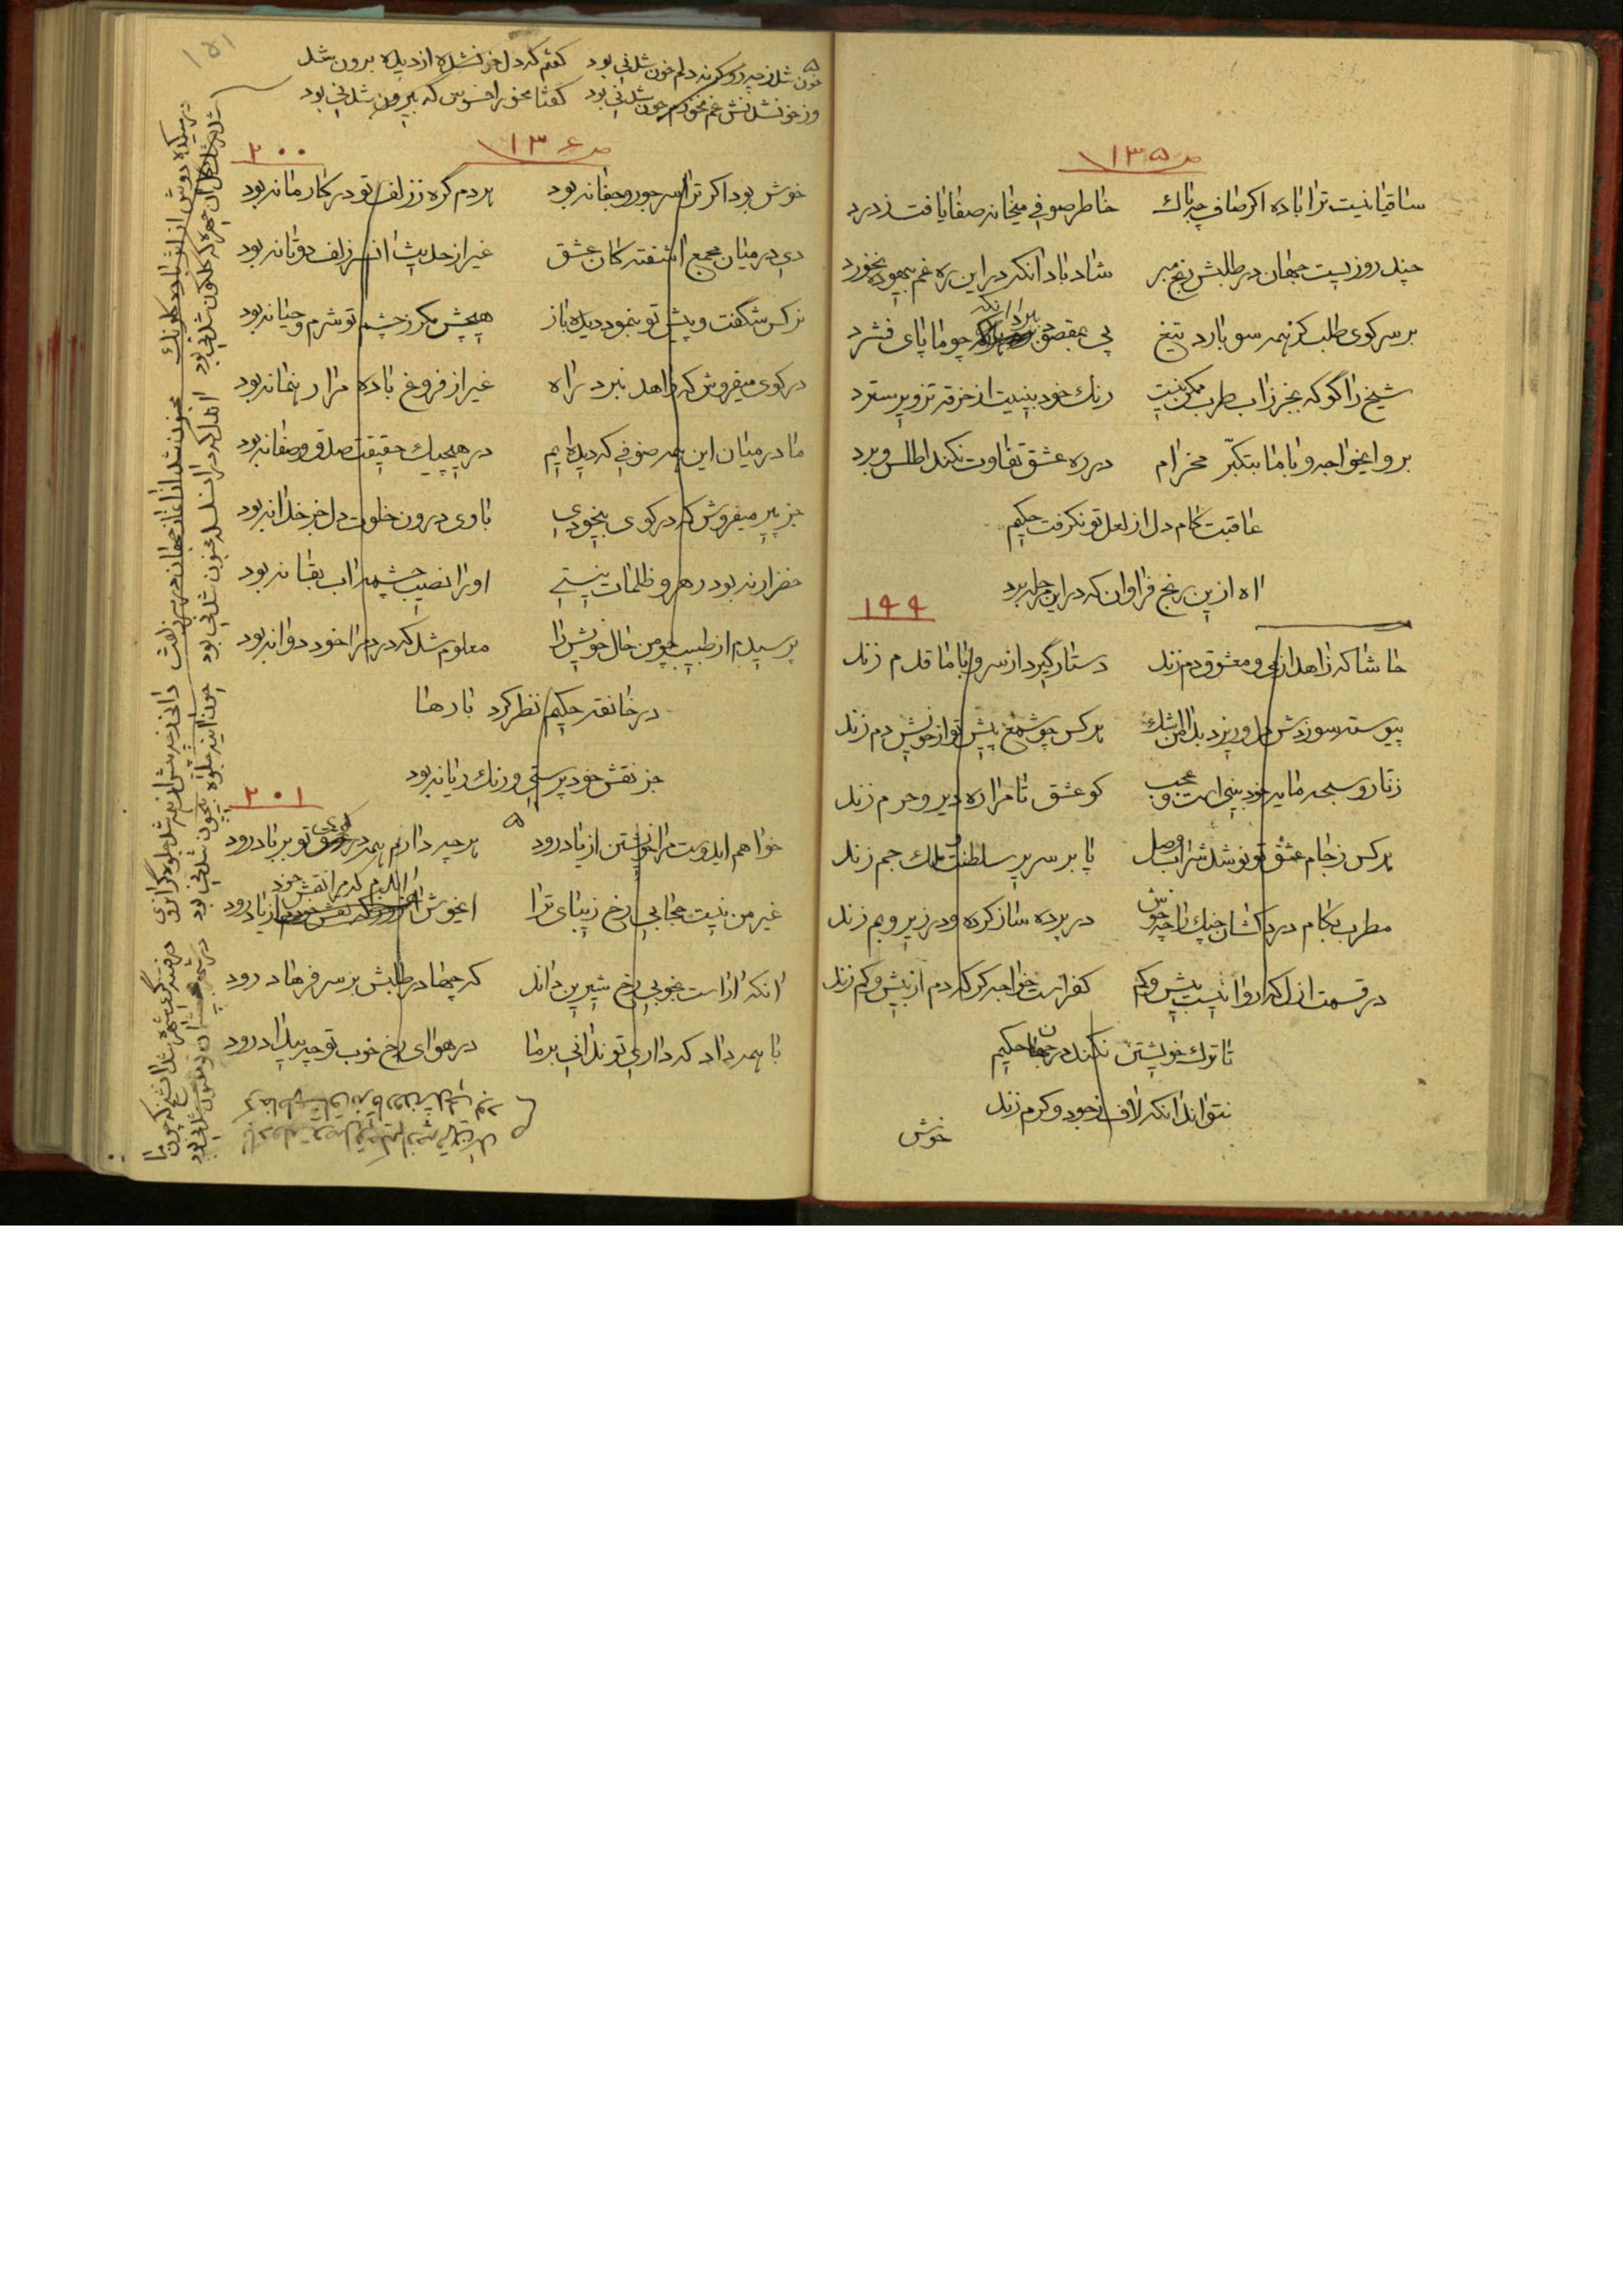 ص ۱۳۵
ساقیا نیست ترا باده اکر صاف چه باک خاطر صوفی میخانه صفا یافت ز درد
چند روزیست جهان در طلبش رنج مبر شاد باد انکه در این ره غم بیهوده نخورد
بر سر کوی طلب کز همه سو بارد تیغ پی بمقصود برد انکه چو ما پای فشرد
شیخ را گو که بجز زاب طرب ممکن نیست رنک خود بینیت از خرقه تزویر سترد
برو ایخواجه و با ما بتکبّر مخرام در ره عشق تفاوت نکند اطلس و برد
عاقبت کام دل از لعل تو نکرفت حکیم
اه از ین رنج فراوان که در این مرحله برد
۱۹۹
حاشا که زاهد از می و معشوق دم زند دستار گیرد از سر و با ما قدم زند
پیوسته سوزدش دل و ریزد بدامن اشک هرکس چو شمع پیش تو از خویش دم زند
زنار و سبحه مایه خود بینی است و عجب کو عشق تا مرا ره دیر و حرم زند
هرکس ز جام عشق تو نوشد شراب وصل پا بر سریر سلطنت و ملک جم زند
مطرب بکام درد کشان چنک را چه خوش در پرده ساز کرده و در زیر و بم زند
در قسمت ازل که روا نیست بیش و کم کفر است خواجه کر که دم از بیش و کم زند
تا ترک خویشتن نکند در جهان حکیم
نتواند انکه لاف ز جود و کرم زند
خوش
۱۵۱
خون شد ز چه رو کرنه دلم خون شدنی بود کفتم که دل خونشده از دیده برون شد
وز خونشدنش غم مخورم چون شدنی بود کفتا مخور افسوس که بیرون شدنی بود
ص ۱۳۶
۲۰۰
خوش بود اکر ترا سر جور و جفا نه بود هردم گره ز زلف تو در کار ما نه بود
دی در میان مجمع اشفته کان عشق غیر از حدیث ان سر زلف دوتا نه بود
نرکس شکفت و پیش تو بنمود دیده باز هیچش مکر ز چشم تو شرم و حیا نه بود
در کوی میفروش که زاهد نبرد راه غیر از فروغ باده مرا رهنما نه بود
ما در میان این همه صوفی که دیده ایم در هیچیک حقیقت صدق و صفا نه بود
جز پیر میفروش که در کوی بیخودی با وی درون خلوت دل جز خدا نه بود
خضر ار نه بود رهرو ظلمات نیستی او را نصیب چشمه اب بقا نه بود
پرسیدم از طبیب چو من حال خویش را معلوم شد که درد مرا خود دوا نه بود
در خانقه حکیم نظر کرد بارها
جز نقش خود پرستی و رنک ریا نه بود
۲۰۱
خواهم ایدوست مرا خویشتن از یاد رود هرچه دارم همه در کوی تو بر باد رود
غیر من نیست حجابی رخ زیبای ترا ایخوش اندم که مرا نقش خود از یاد رود
انکه اراست بخوبی رخ شیرین داند که چها در طلبش بر سر فرهاد رود
با همه داد که داری تو ندانی بر ما در هوای رخ خوب تو چه بیداد رود